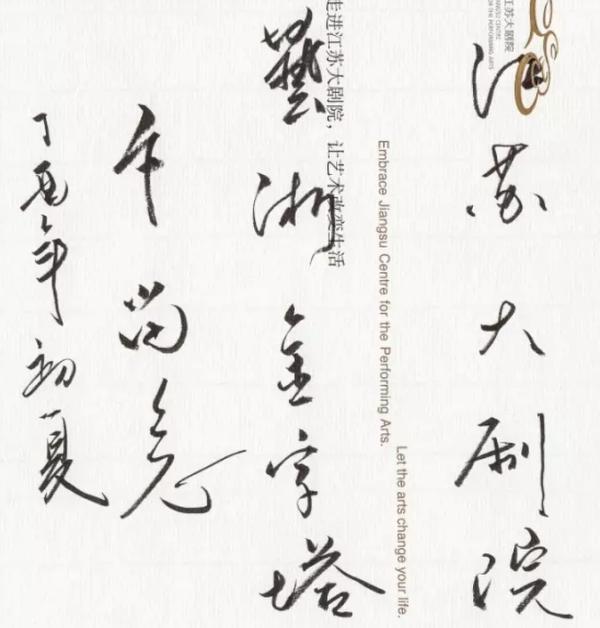 江苏大剧院
JIANGSU CENTRE
FOR THE PERFORMING ARTS
江苏大剧院
Let the arts change your life.
Embrace Jiangsu Centre for the Performing Arts.
走进江苏大剧院，让艺术改变生活
藝術金字塔
丁酉年初夏